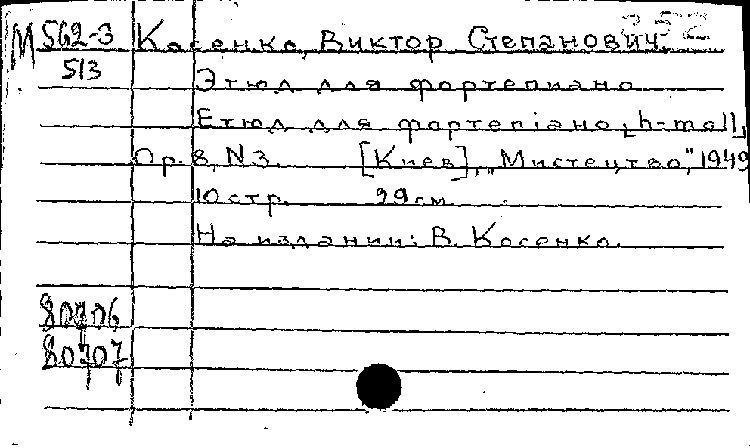 М 562-3
513
352
Косенко, Виктор Степанович.
Этюд для фортепиано
Етюд для фортепіано [h-moll]
Ор. 8, N 3. [Киев], „Мистецтво", 1949
10 стр. 29 см.
На издании: В. Косенко.
80706
80707